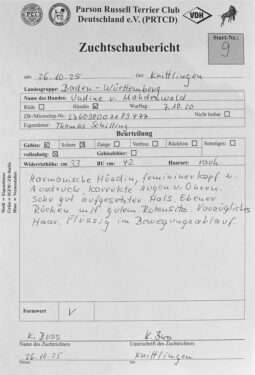 Parson Russell Terrier Club
Deutschland e.V. (PRTCD)
FCI
VDH
Zuchtschaubericht
Start-Nr.:
9
am 26.10.25 in Knittlingen
Landesgruppe: Baden-Württemberg
Name des Hundes:
Rüde: Hündin: Wurftag: 7.10.20
ZB-/Microchip-Nr.: Nicht lesbar
Eigentümer: Thomas Schilling
Beurteilung
Gebiss: Schere: Zange: Vorbiss: Rückbiss: Sonstiges:
vollzahnig: Gebissfehler:
Widerristhöhe: 33 BU cm: 42 Haarart: rauh
Harmonische Hündin, femininer Kopf u.
Ausdruck korrekte Augen u. Ohren.
Sehr gut aufgesetzter Hals Ebener
Rücken mit gutem Rutensitz. Vorzügliches
Haar. Flüssig im Bewegungsablauf
Formwert V
Name des Zuchtrichters Unterschrift des Zuchtrichters
26.10.25 Knittlingen